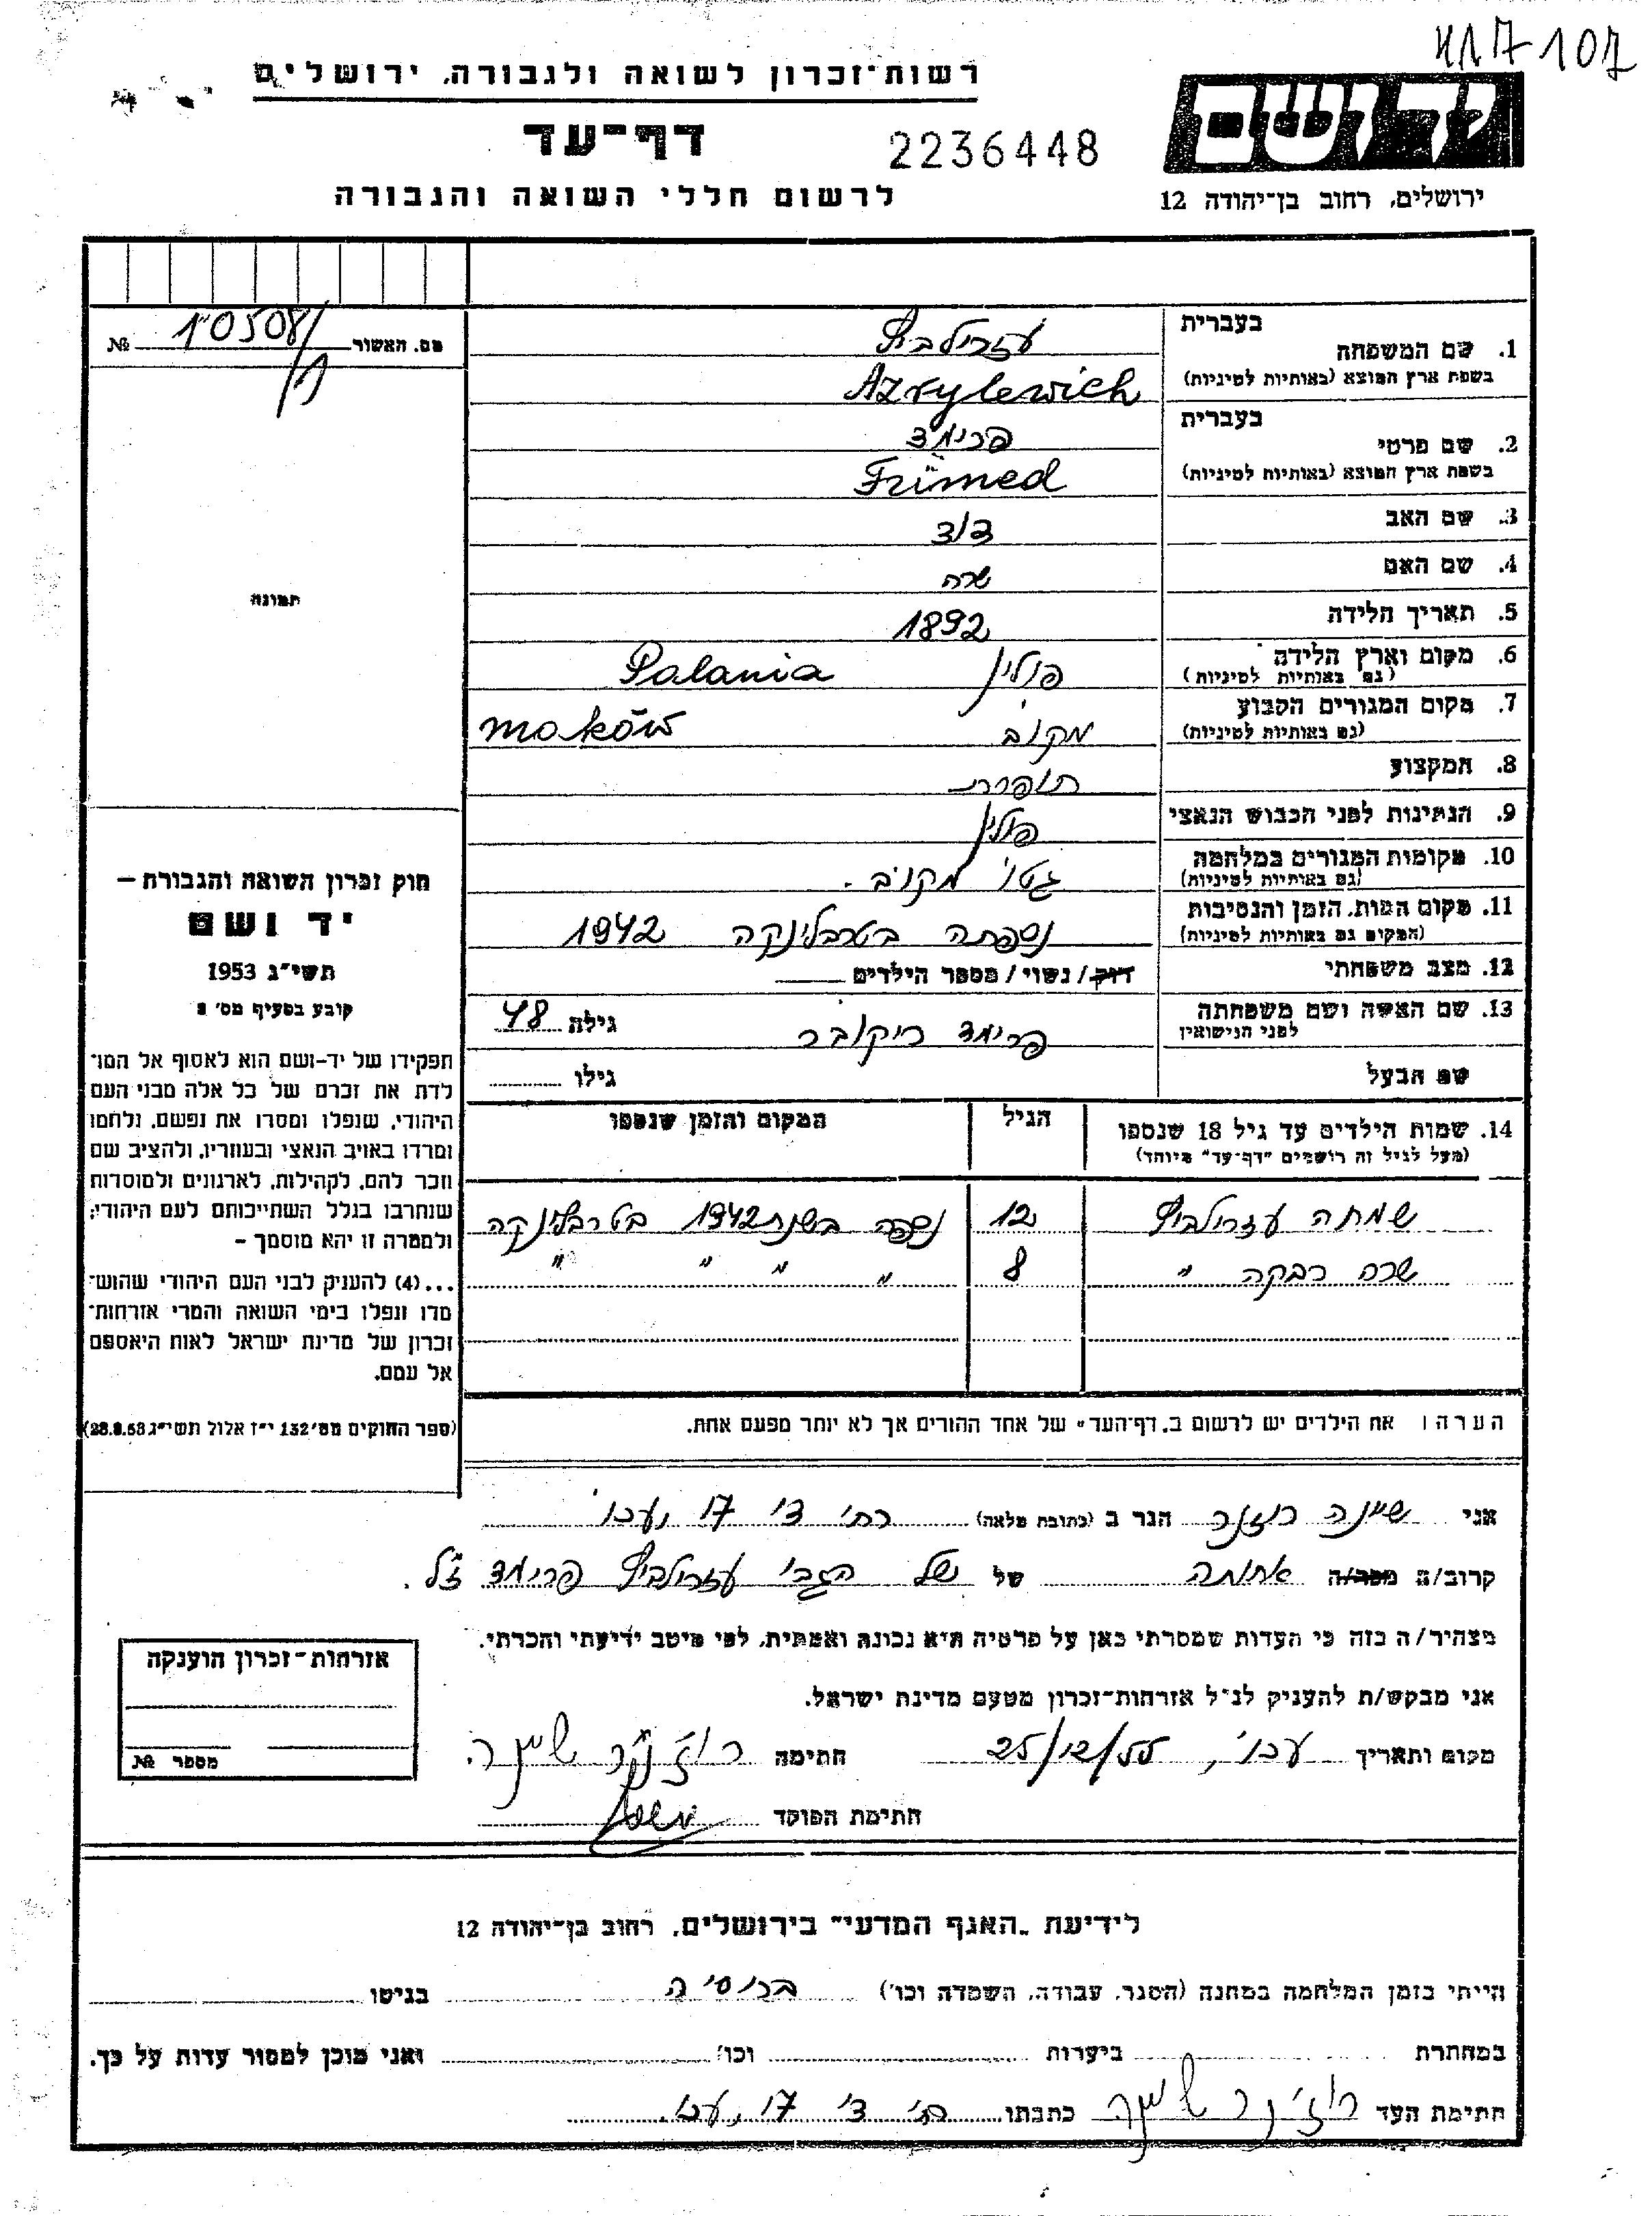 417-107
רשות־זכרון לשואה ולגבורה, ירושלים
דף־עד
2236448
ידושם
לרשום חללי השואה והגבורה
ירושלים, רחוב בן־יהודה 12
מס. האשור 10508/ №
1. שם המשפחה
בעברית עזרילביץ
בשפת ארץ המוצא (באותיות לטיניות) Azrylewich
2. שם פרטי
בעברית פרימד
בשפת ארץ המוצא (באותיות לטיניות) Frimed
3. שם האב דוד
4. שם האם שרה
5. תאריך הלידה 1892
6. מקום וארץ הלידה (גם באותיות לטיניות) פולין Palania
7. מקום המגורים הקבוע (גם באותיות לטיניות) מקוב Maków
8. המקצוע תופרת
9. הנתינות לפני הכבוש הנאצי פולין
10. מקומות המגורים במלחמה (גם באותיות לטיניות) גטו מקוב.
11. מקום המות, הזמן והנסיבות (המקום גם באותיות לטיניות) נספתה בטרבלינקה 1942
12. מצב משפחתי רוק/נשוי/מספר הילדים
13. שם האשה ושם משפחתה לפני הנישואין פרימד גילה 48
שם הבעל גילו
14. שמות הילדים עד גיל 18 שנספו (מעל לגיל זה רושמים "דף־עד" מיוחד) הגיל המקום והזמן שנספו
שמחה עזרילביץ 12 נספה בשנת 1942 בטרבלינקה
שרה רבקה " 8 " " " "
הערה: את הילדים יש לרשום ב„דף־העד" של אחד ההורים אך לא יותר מפעם אחת.
תמונה
חוק זכרון השואה והגבורה –
יד ושם
תשי"ג 1953
קובע בסעיף מס' 2
תפקידו של יד-ושם הוא לאסוף אל המו־
לדת את זכרם של כל אלה מבני העם
היהודי, שנפלו ומסרו את נפשם, נלחמו
ומרדו באויב הנאצי ובעוזריו, ולהציב שם
וזכר להם, לקהילות, לארגונים ולמוסדות
שנחרבו בגלל השתייכותם לעם היהודי;
ולמטרה זו יהא מוסמך –
...(4) להעניק לבני העם היהודי שהוש־
מדו ונפלו בימי השואה והמרי אזרחות־
זכרון של מדינת ישראל לאות היאספם
אל עמם.
(ספר החוקים מס' 132 י"ז אלול תשי"ג 28.8.53)
אני שיינה רוזנר הגר ב (כתובת מלאה) 17 עכו
קרוב/ה מכר/ה אחותה של של הגב' עזרילביץ פרימד ז"ל.
מצהיר/ה בזה כי העדות שמסרתי כאן על פרטיה היא נכונה ואמתית, לפי מיטב ידיעתי והכרתי.
אני מבקש/ת להעניק לנ"ל אזרחות־זכרון מטעם מדינת ישראל.
מקום ותאריך עכו, 25/12/55 חתימה רוז'נר שיינה
חתימת הפוקד
אזרחות־זכרון הוענקה
מספר №
לידיעת „האגף המדעי" בירושלים, רחוב בן־יהודה 12
הייתי בזמן המלחמה במחנה (הסגר, עבודה, השמדה וכו') ברוסיה בגיטו
במחתרת ביערות וכו' ואני מוכן למסור עדות על כך.
חתימת העד רוז'נר שיינה כתבתו 17, עכו.